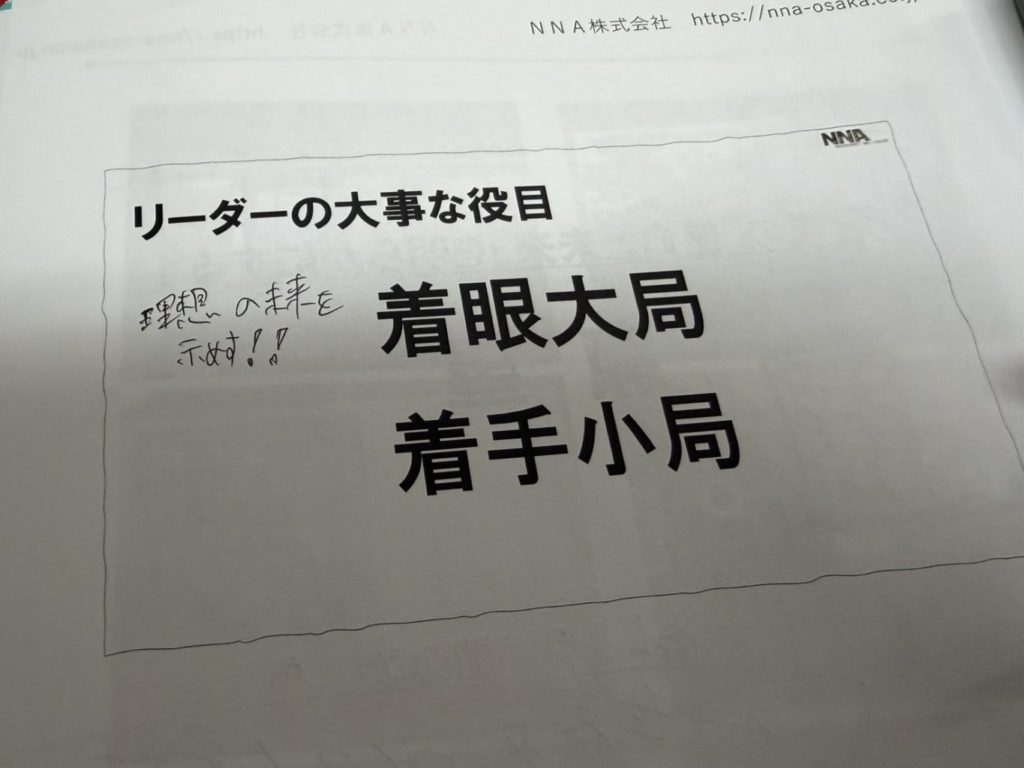 NNA株式会社 https://nna-osaka.co.jp/
NNA
リーダーの大事な役目
理想の未来を
示めす!!
着眼大局
着手小局